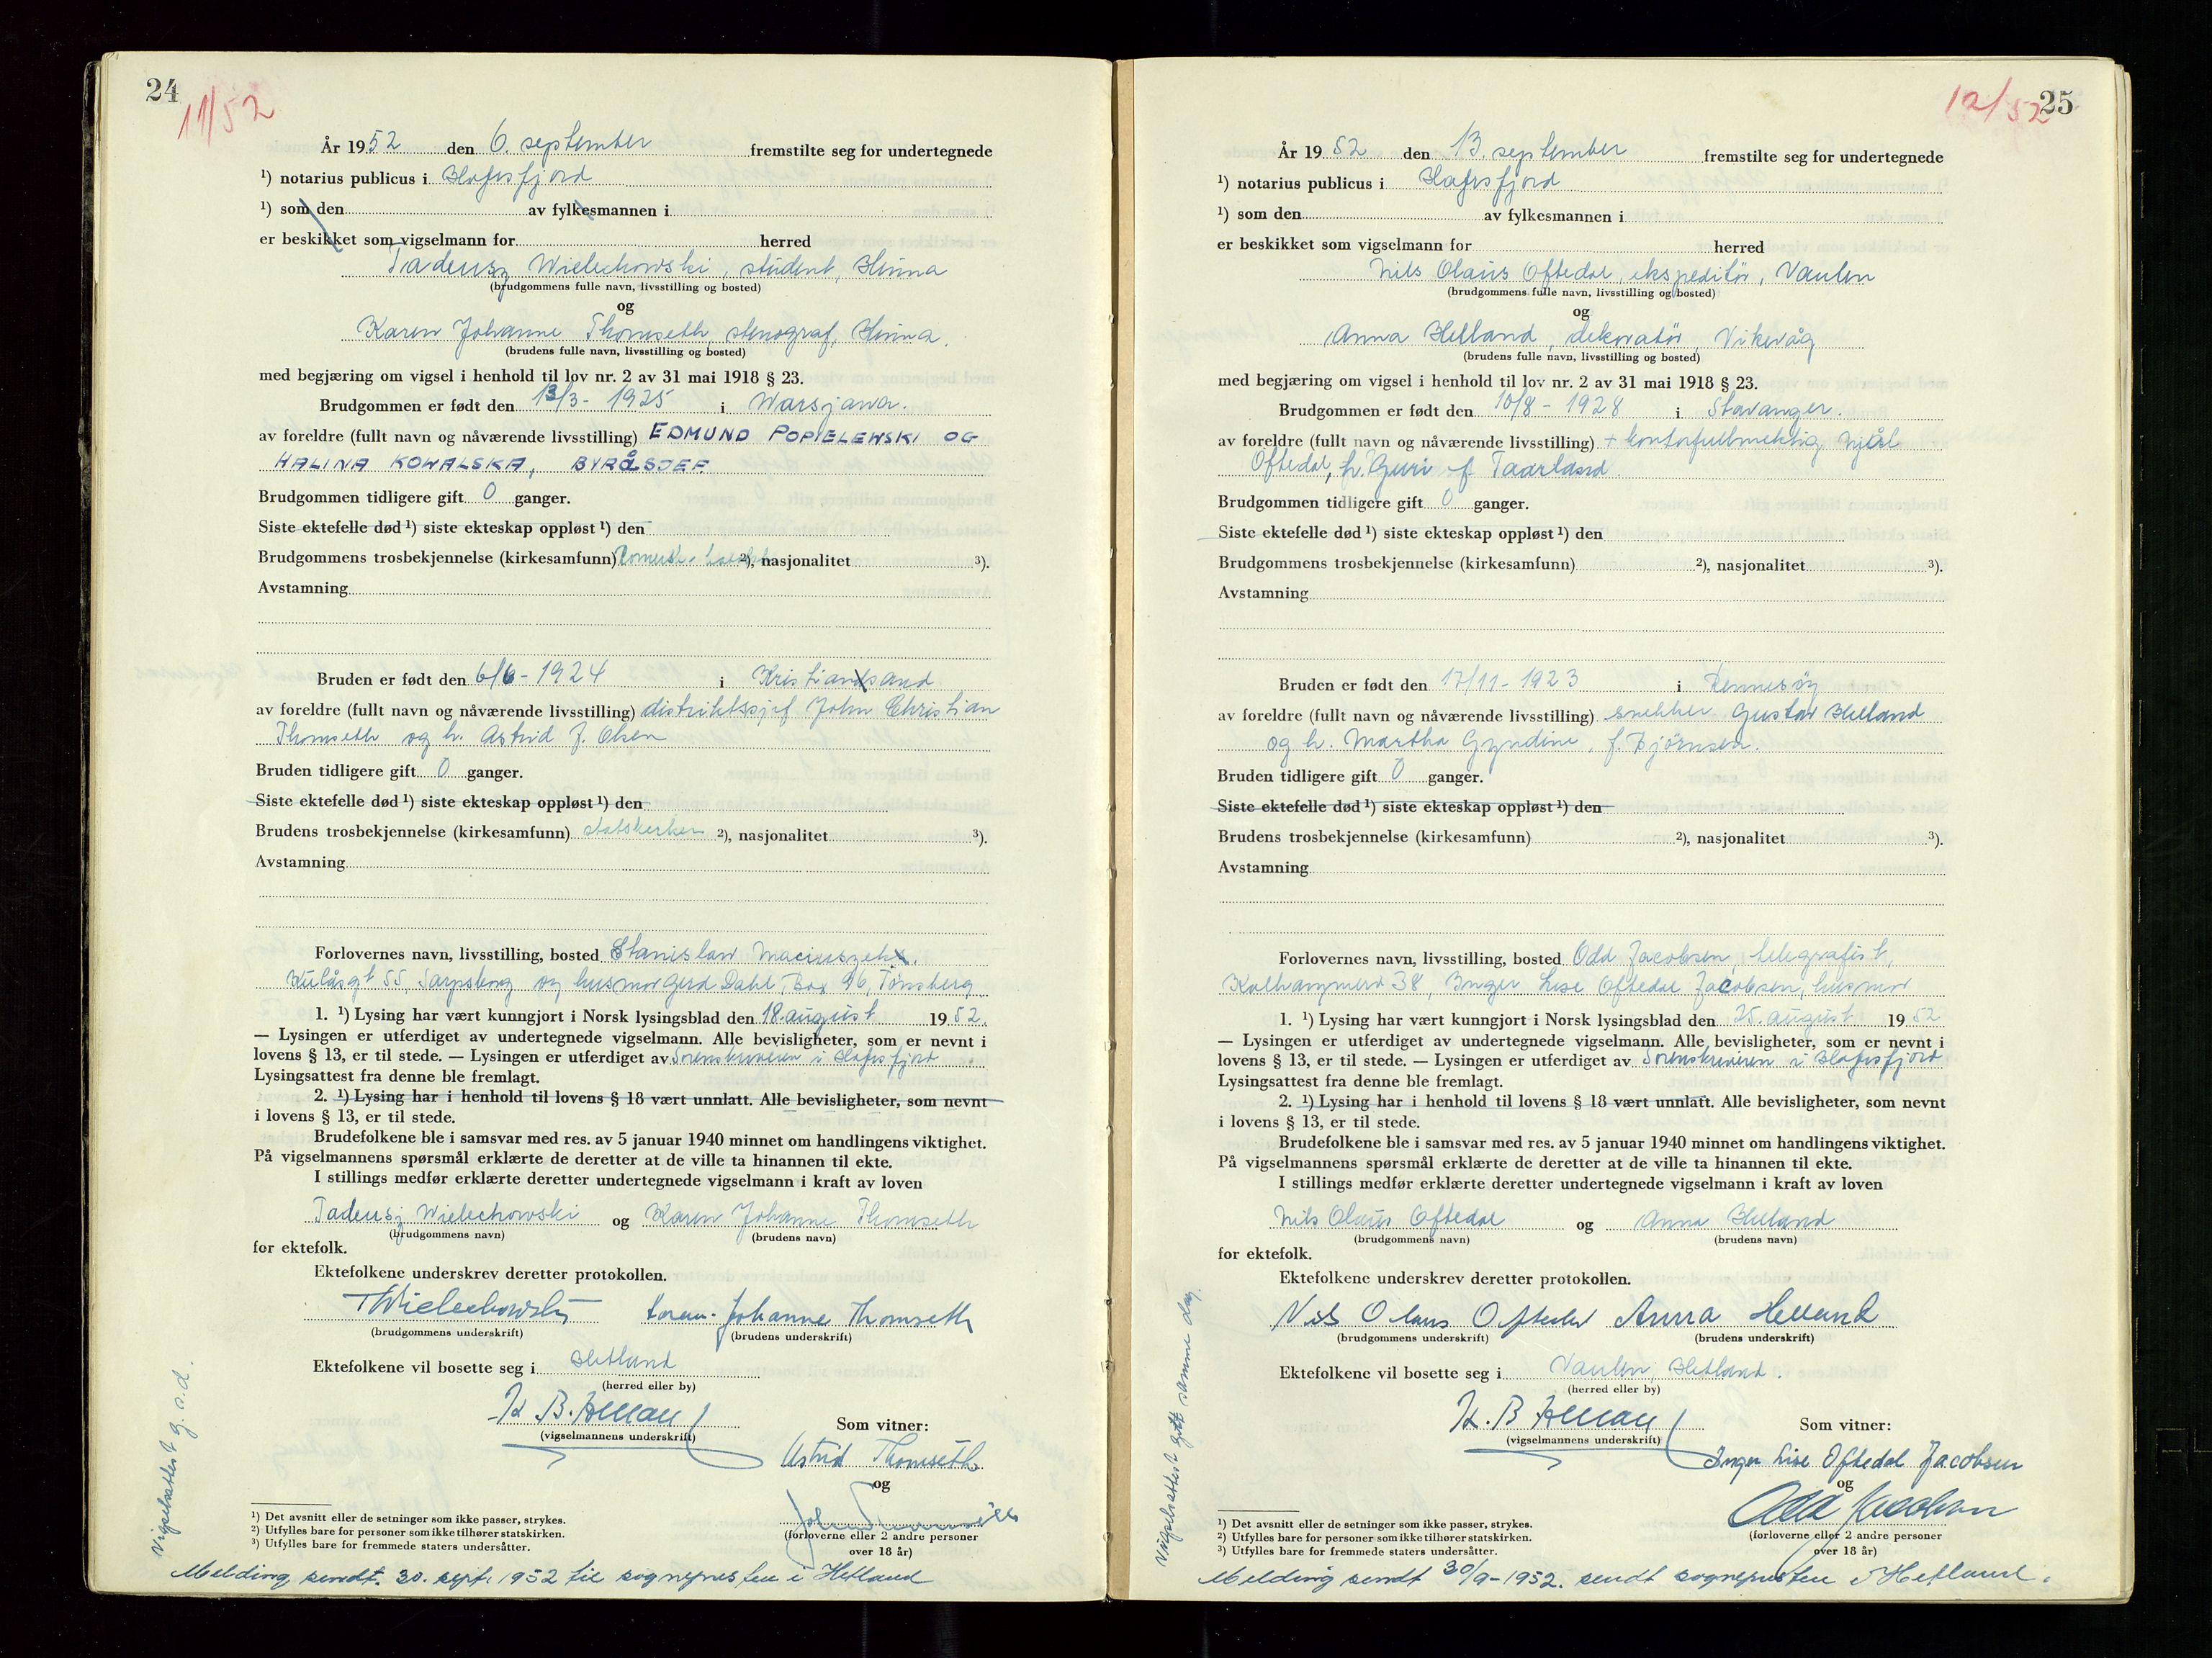 24
11/52
År 1952 den 6. september fremstilte seg for undertegnede
¹) notarius publicus i Hafrsfjord
¹) som den av fylkesmannen i
er beskikket som vigselmann for herred
Tadeusz Wielechowski, student, Hinna
(brudgommens fulle navn, livsstilling og bosted)
og
Karen Johanne Thomseth, stenograf, Hinna.
(brudens fulle navn, livsstilling og bosted)
med begjæring om vigsel i henhold til lov nr. 2 av 31 mai 1918 § 23.
Brudgommen er født den 13/3 - 1925 i Warsjawa.
av foreldre (fullt navn og nåværende livsstilling) EDMUND POPIELEWSKI OG
HALINA KOWALSKA, BYRÅSJEF
Brudgommen tidligere gift 0 ganger.
Siste ektefelle død ¹) siste ekteskap oppløst ¹) den
Brudgommens trosbekjennelse (kirkesamfunn) ²), nasjonalitet ³).
Avstamning
Bruden er født den 6/6 - 1924 i Kristiansand
av foreldre (fullt navn og nåværende livsstilling) distriktssjef John Christian
Thomseth og h. Astrid f. Olsen
Bruden tidligere gift 0 ganger.
Siste ektefelle død ¹) siste ekteskap oppløst ¹) den
Brudens trosbekjennelse (kirkesamfunn) statskirken ²), nasjonalitet ³).
Avstamning
Forlovernes navn, livsstilling, bosted Stanislaw
55, Sarpsborg og husmor Gerd Dahl, Box 96, Tønsberg
1. ¹) Lysing har vært kunngjort i Norsk lysingsblad den 18. august 1952.
— Lysingen er utferdiget av undertegnede vigselmann. Alle bevisligheter, som er nevnt i
lovens § 13, er til stede. — Lysingen er utferdiget av Sorenskriveren i Hafrsfjord.
Lysingsattest fra denne ble fremlagt.
2. ¹) Lysing har i henhold til lovens § 18 vært unnlatt. Alle bevisligheter, som nevnt
i lovens § 13, er til stede.
Brudefolkene ble i samsvar med res. av 5 januar 1940 minnet om handlingens viktighet.
På vigselmannens spørsmål erklærte de deretter at de ville ta hinannen til ekte.
I stillings medfør erklærte deretter undertegnede vigselmann i kraft av loven
Tadeusz Wielechowski og Karen Johanne Thomseth
(brudgommens navn) (brudens navn)
for ektefolk.
Ektefolkene underskrev deretter protokollen.
TWielechowski Karen-Johanne Thomseth
(brudgommens underskrift) (brudens underskrift)
Ektefolkene vil bosette seg i Hetland
(herred eller by)
(vigselmannens underskrift)
Som vitner:
Astrid Thomseth
og
(forloverne eller 2 andre personer
over 18 år)
¹) Det avsnitt eller de setninger som ikke passer, strykes.
²) Utfylles bare for personer som ikke tilhører statskirken.
³) Utfylles bare for fremmede staters undersåtter.
Vigselsattest g. s. d.
Melding sendt. 30. sept. 1952 til sogneprsten i Hetland
12/52
25
År 1952 den 13. september fremstilte seg for undertegnede
¹) notarius publicus i Hafrsfjord
¹) som den av fylkesmannen i
er beskikket som vigselmann for herred
Nils Olaus Oftedal, ekspeditør, Vaulen
(brudgommens fulle navn, livsstilling og bosted)
og
Anna Helland, dekoratør, Vikevåg
(brudens fulle navn, livsstilling og bosted)
med begjæring om vigsel i henhold til lov nr. 2 av 31 mai 1918 § 23.
Brudgommen er født den 10/8 - 1928 i Stavanger.
av foreldre (fullt navn og nåværende livsstilling) + kontorfullmektig Njål
Oftedal, h. Guri f. Taarland.
Brudgommen tidligere gift 0 ganger.
Siste ektefelle død ¹) siste ekteskap oppløst ¹) den
Brudgommens trosbekjennelse (kirkesamfunn) ²), nasjonalitet ³).
Avstamning
Bruden er født den 17/11 - 1923 i Rennesøy
av foreldre (fullt navn og nåværende livsstilling) snekker Gustav Helland
og h. Martha Gyndine, f. Bjørnsen.
Bruden tidligere gift 0 ganger.
Siste ektefelle død ¹) siste ekteskap oppløst ¹) den
Brudens trosbekjennelse (kirkesamfunn) ²), nasjonalitet ³).
Avstamning
Forlovernes navn, livsstilling, bosted Odd Jacobsen, telegrafist,
38, Inger Lise Oftedal Jacobsen, husmor
1. ¹) Lysing har vært kunngjort i Norsk lysingsblad den 25. august 1952
— Lysingen er utferdiget av undertegnede vigselmann. Alle bevisligheter, som er nevnt i
lovens § 13, er til stede. — Lysingen er utferdiget av Sorenskriveren i Hafrsfjord
Lysingsattest fra denne ble fremlagt.
2. ¹) Lysing har i henhold til lovens § 18 vært unnlatt. Alle bevisligheter, som nevnt
i lovens § 13, er til stede.
Brudefolkene ble i samsvar med res. av 5 januar 1940 minnet om handlingens viktighet.
På vigselmannens spørsmål erklærte de deretter at de ville ta hinannen til ekte.
I stillings medfør erklærte deretter undertegnede vigselmann i kraft av loven
Nils Olaus Oftedal og Anna Helland
(brudgommens navn) (brudens navn)
for ektefolk.
Ektefolkene underskrev deretter protokollen.
Nils Olaus Oftedal Anna Helland
(brudgommens underskrift) (brudens underskrift)
Ektefolkene vil bosette seg i Vaulen, Hetland.
(herred eller by)
(vigselmannens underskrift)
Som vitner:
Inger Lise Oftedal Jacobsen
og
Odd Jacobsen
(forloverne eller 2 andre personer
over 18 år)
¹) Det avsnitt eller de setninger som ikke passer, strykes.
²) Utfylles bare for personer som ikke tilhører statskirken.
³) Utfylles bare for fremmede staters undersåtter.
Vigselsattest gitt samme dag.
Melding sendt 30/9-1952. sendt sognepresten i Hetland.